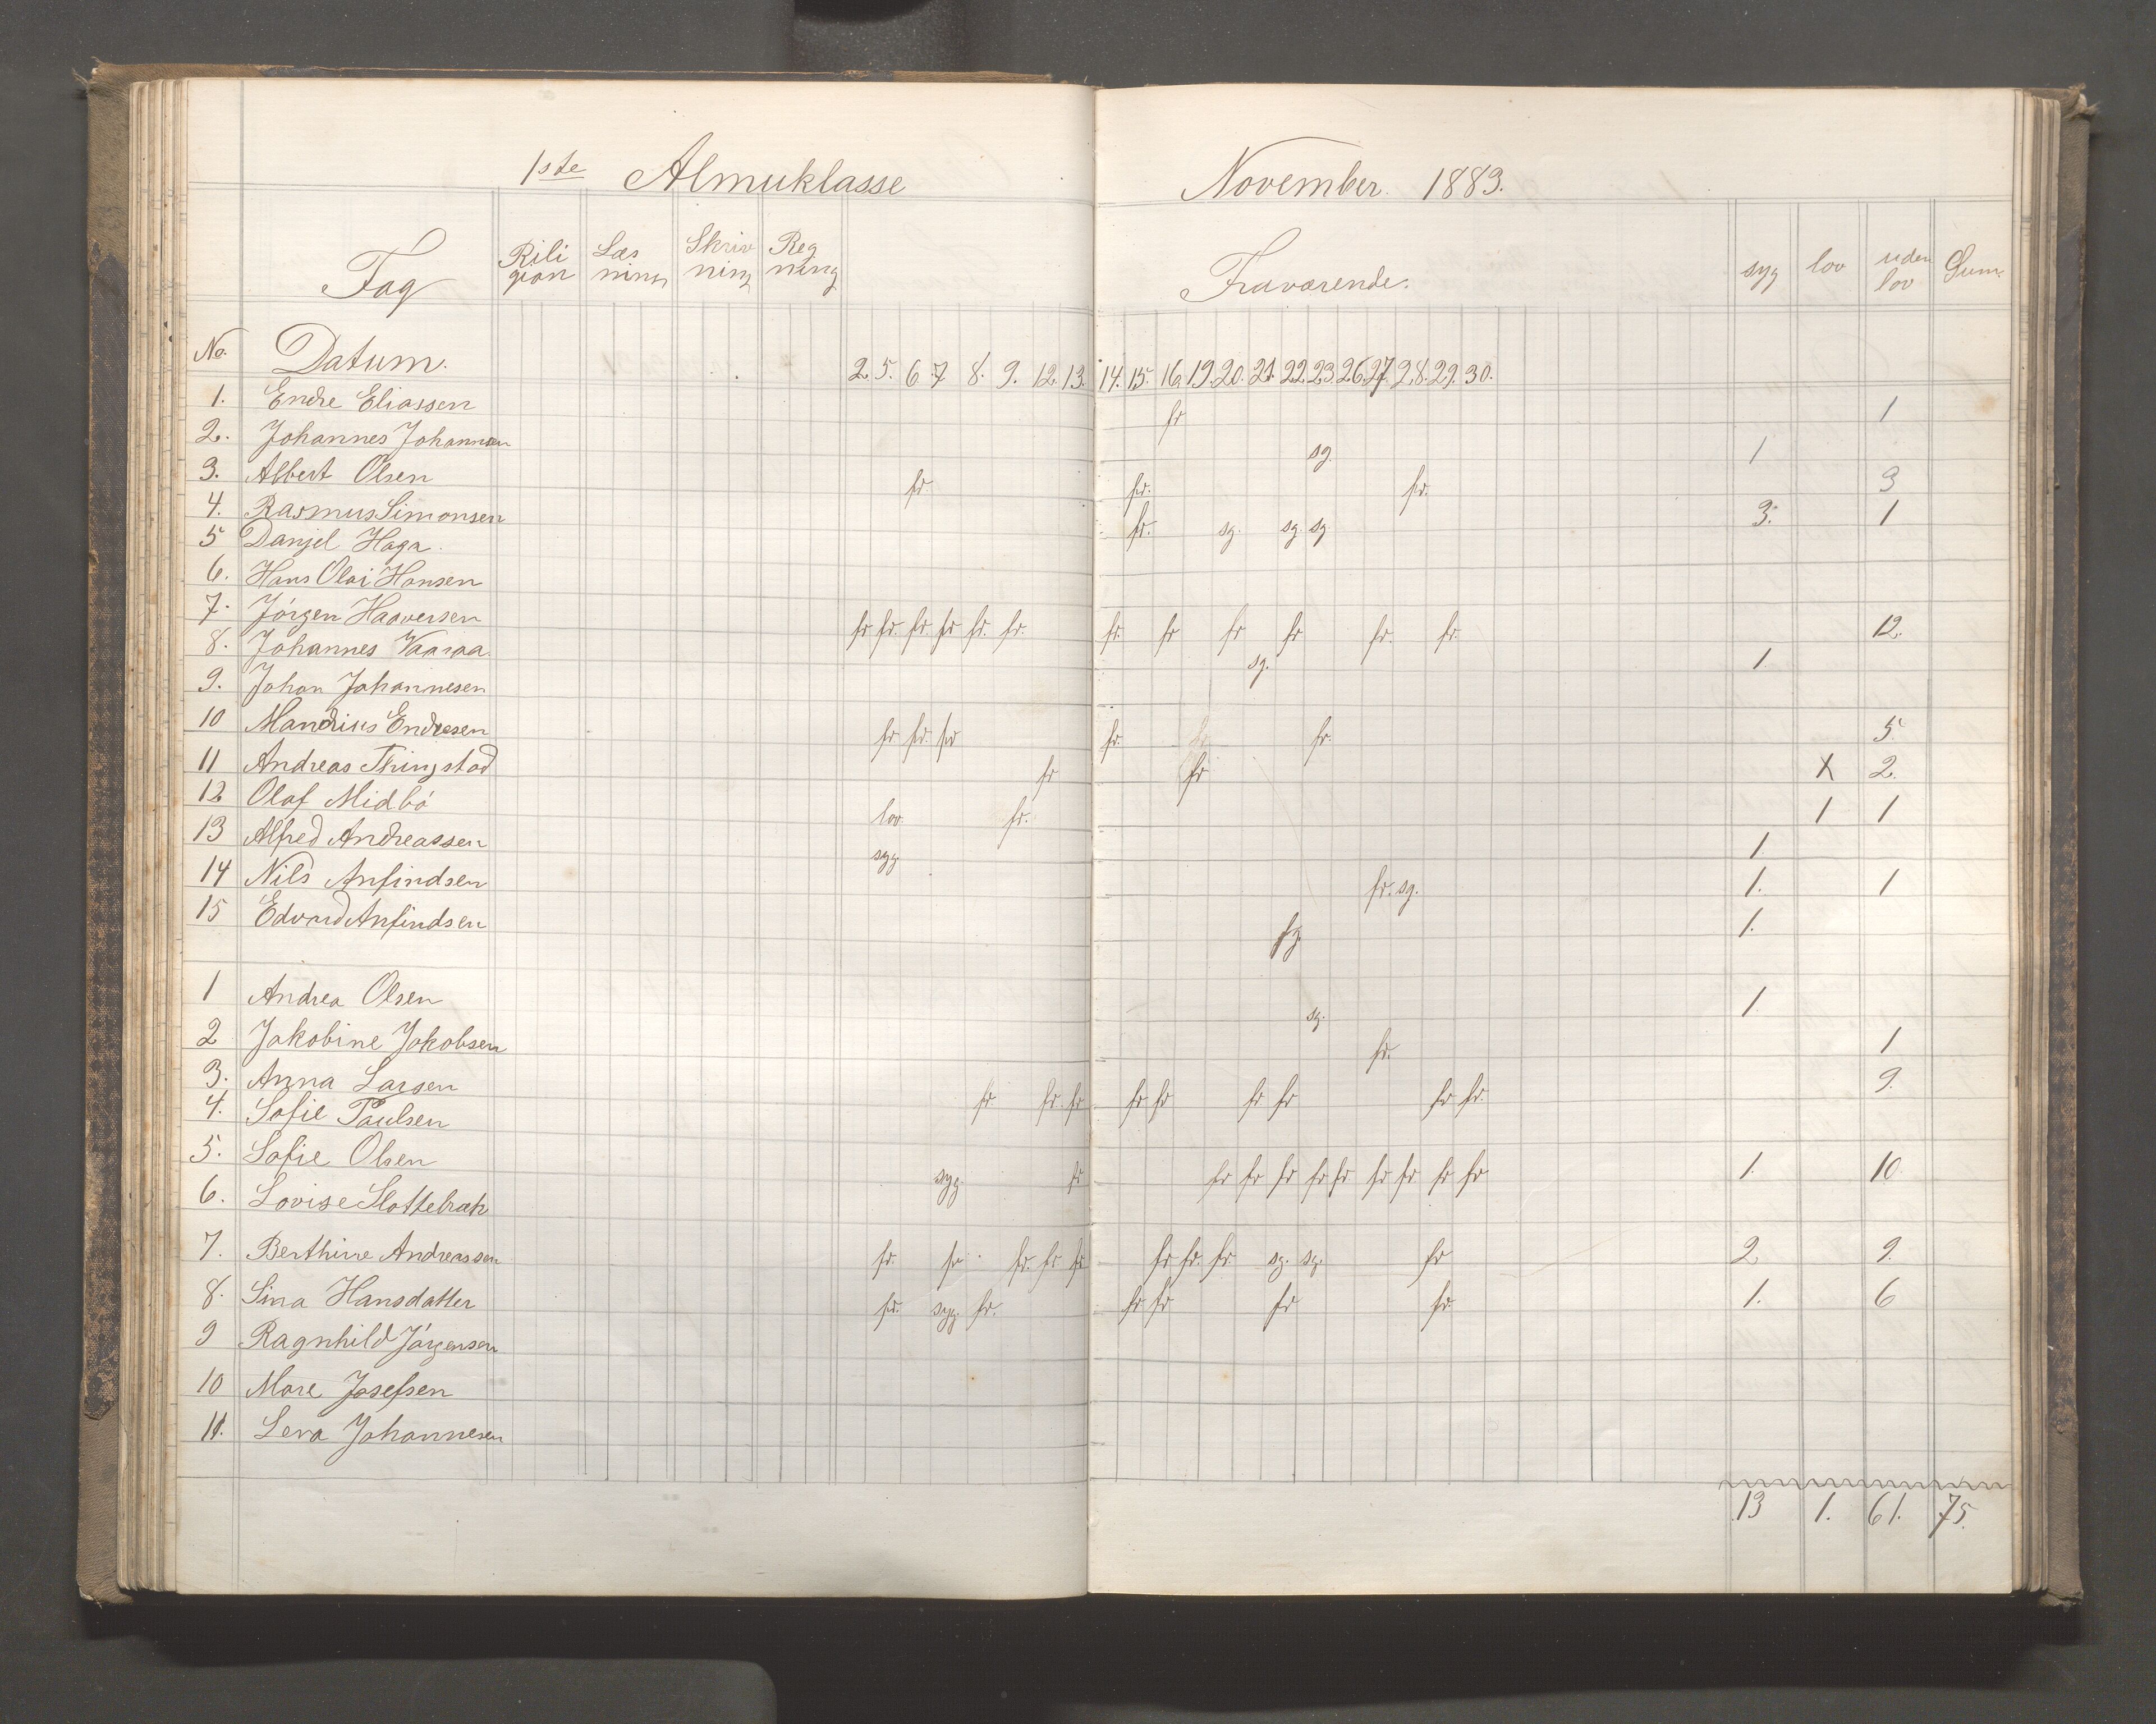 1ste Almuklasse November. 1883.
Fag Rili gion Læs ning Skriv ning Reg ning Fraværende. syg lov uden lov Sum
No. Datum. 2. 5. 6 7 8. 9. 12. 13. 14. 15. 16. 19. 20. 21. 22. 23. 26. 27. 28. 29. 30.
1. Endre Eliassen fr 1
2. Johannes Johannesen sg. 1
3. Albert Olsen fr. fr. fr. 3
4. Rasmus Simonsen fr. sg. sg. sg 3. 1
5 Danjel Haga.
6. Hans Olai Hansen
7. Jörgen Haaversen fr fr. fr. fr fr. fr. fr. fr fr fr fr. fr. 12.
8. Johannes Vaaraa sg. 1.
9. Johan Johannesen
10 Mandrius Endresen fr fr. fr fr. fr. 5.
11 Andreas Thingstad fr fr X 2.
12 Olaf Midbö lov fr. 1 1
13 Alfred Andreassen syg. 1
14 Nils Anfindsen fr. sg. 1. 1
15 Edvard Anfindsen sg. 1.
1 Andrea Olsen sg. 1
2 Jakobine Jakobsen fr. 1
3. Anna Larsen fr fr. fr fr fr fr fr fr fr. 9.
4. Sofie Paulsen
5. Sofie Olsen syg. fr fr fr fr fr fr fr fr fr fr 1. 10.
6. Lovise Slottebræk
7. Berthine Andreassen fr. fr. fr. fr. fr fr fr. fr. sg. sg. fr 2. 9.
8. Sina Hansdatter fr. syg. fr. fr fr fr fr. 1. 6
9 Ragnhild Jörgensen
10 Mare Josefsen
11. Lena Johannesen
13 1. 61. 75.